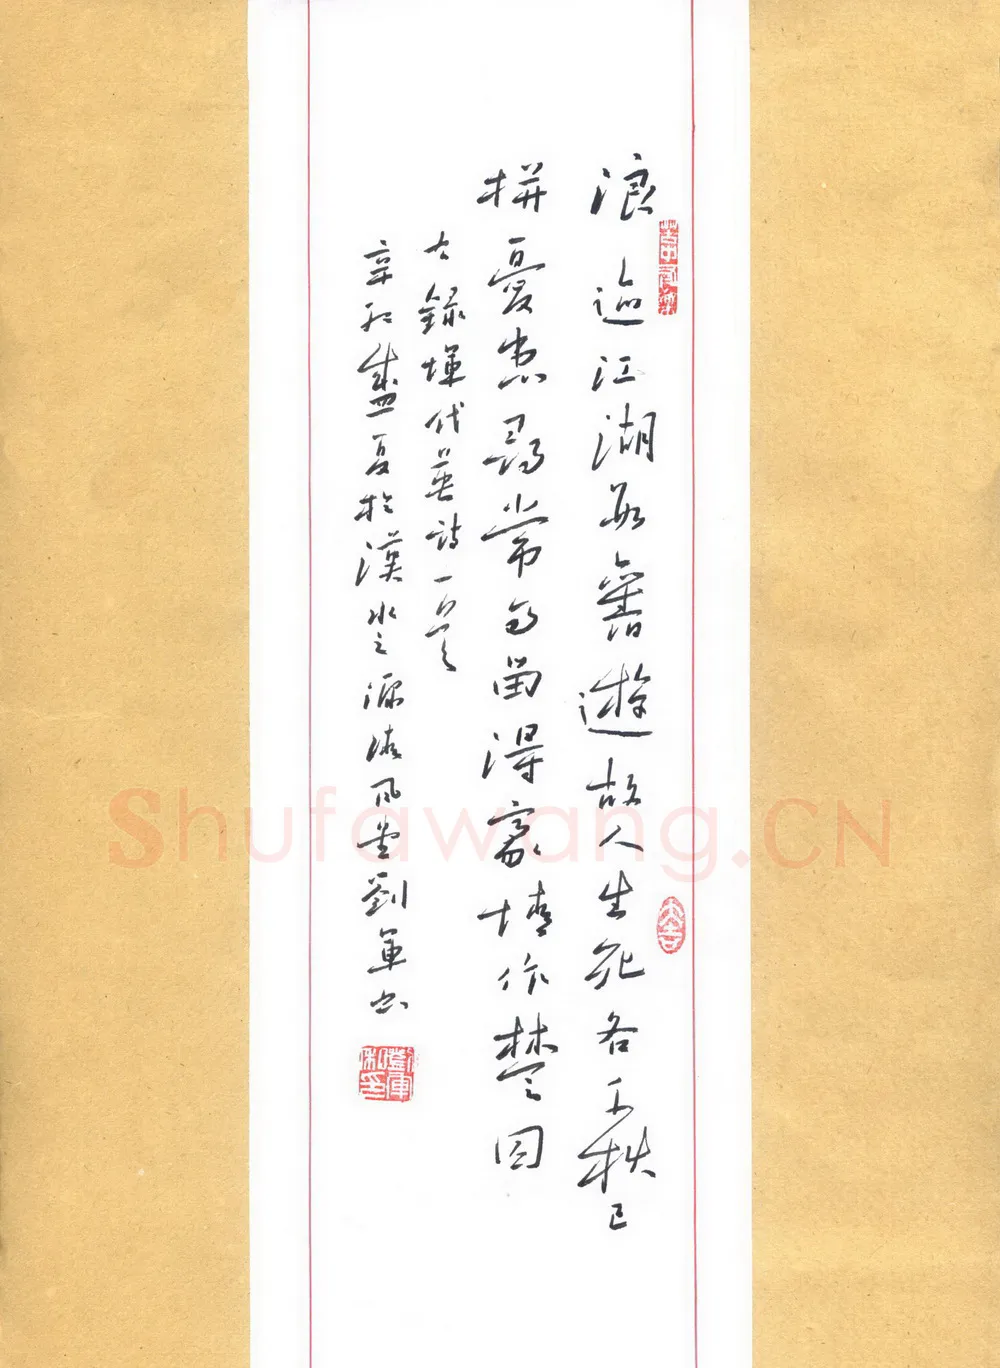 浪迹江湖舊遊故人生死各千秋已
拼憂患尋常事留得豪情作楚囚
右錄惲代英詩一首
辛卯盛夏於漢水之源清風堂劉軍書
Shufawang.CN